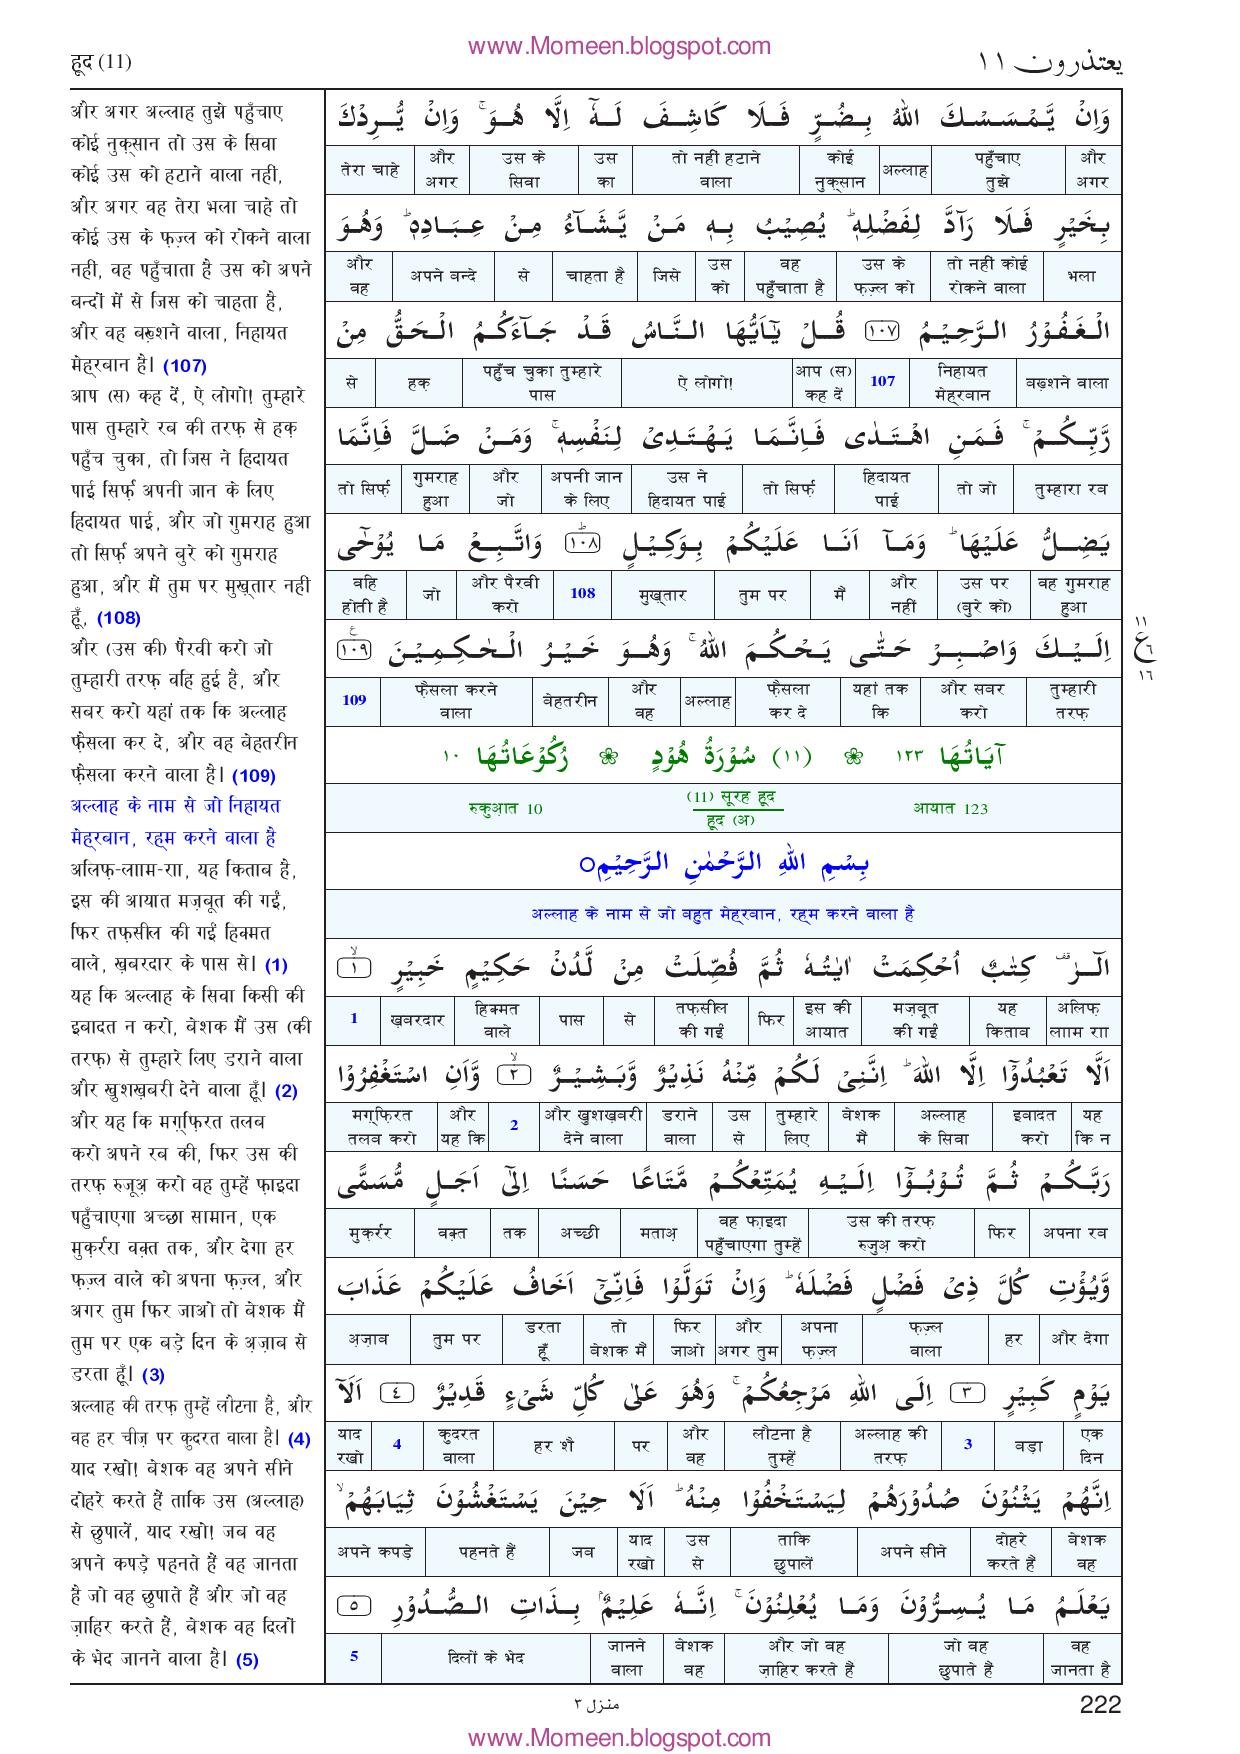 www.Momeen.blogspot.com
हूद (11)
یعتذرون ۱۱
और अगर अल्लाह तुझे पहुँचाए
कोई नुक़्सान तो उस के सिवा
कोई उस को हटाने वाला नहीं,
और अगर वह तेरा भला चाहे तो
कोई उस के फ़ज़्ल को रोकने वाला
नहीं, वह पहुँचाता है उस को अपने
बन्दों में से जिस को चाहता है,
और वह बख़्शने वाला, निहायत
मेह्रबान है। (107)
आप (स) कह दें, ऐ लोगो! तुम्हारे
पास तुम्हारे रब की तरफ़ से हक़
पहुँच चुका, तो जिस ने हिदायत
पाई सिर्फ़ अपनी जान के लिए
हिदायत पाई, और जो गुमराह हुआ
तो सिर्फ़ अपने बुरे को गुमराह
हुआ, और मैं तुम पर मुख़्तार नहीं
हूँ, (108)
और (उस की) पैरवी करो जो
तुम्हारी तरफ़ वहि हुई है, और
सबर करो यहां तक कि अल्लाह
फ़ैसला कर दे, और वह बेहतरीन
फ़ैसला करने वाला है। (109)
अल्लाह के नाम से जो निहायत
मेह्रबान, रहम करने वाला है
अलिफ़-लााम-राा, यह किताब है,
इस की आयात मज़बूत की गईं,
फिर तफ़सील की गईं हिक्मत
वाले, ख़बरदार के पास से। (1)
यह कि अल्लाह के सिवा किसी की
इबादत न करो, बेशक मैं उस (की
तरफ़) से तुम्हारे लिए डराने वाला
और खुशख़बरी देने वाला हूँ। (2)
और यह कि मग़्फ़िरत तलब
करो अपने रब की, फिर उस की
तरफ़ रुजूअ़ करो वह तुम्हें फ़ाइदा
पहुँचाएगा अच्छा सामान, एक
मुक़र्ररा वक़्त तक, और देगा हर
फ़ज़्ल वाले को अपना फ़ज़्ल, और
अगर तुम फिर जाओ तो बेशक मैं
तुम पर एक बड़े दिन के अ़ज़ाब से
डरता हूँ। (3)
अल्लाह की तरफ़ तुम्हें लौटना है, और
वह हर चीज़ पर कुदरत वाला है। (4)
याद रखो! बेशक वह अपने सीने
दोहरे करते हैं ताकि उस (अल्लाह)
से छुपालें, याद रखो! जब वह
अपने कपड़े पहनते हैं वह जानता
है जो वह छुपाते हैं और जो वह
ज़ाहिर करते हैं, बेशक वह दिलों
के भेद जानने वाला है। (5)
وَاِنْ يَّمْسَسْكَ اللّٰهُ بِضُرٍّ فَلَا كَاشِفَ لَهٗٓ اِلَّا هُوَ ۚ وَاِنْ يُّرِدْكَ
और अगर | पहुँचाए तुझे | अल्लाह | कोई नुक़्सान | तो नहीं हटाने वाला | उस का | उस के सिवा | और अगर | तेरा चाहे
بِخَيْرٍ فَلَا رَآدَّ لِفَضْلِهٖ ؕ يُصِيْبُ بِهٖ مَنْ يَّشَآءُ مِنْ عِبَادِهٖ ؕ وَهُوَ
भला | तो नहीं कोई रोकने वाला | उस के फ़ज़्ल को | वह पहुँचाता है | उस को | जिसे | चाहता है | से | अपने बन्दे | और वह
الْغَفُوْرُ الرَّحِيْمُ ۝۱۰۷ قُلْ يٰٓاَيُّهَا النَّاسُ قَدْ جَآءَكُمُ الْحَقُّ مِنْ
बख़्शने वाला | निहायत मेह्रबान | 107 | आप (स) कह दें | ऐ लोगो! | पहुँच चुका तुम्हारे पास | हक़ | से
رَّبِّكُمْ ۚ فَمَنِ اهْتَدٰى فَاِنَّمَا يَهْتَدِىْ لِنَفْسِهٖ ۚ وَمَنْ ضَلَّ فَاِنَّمَا
तुम्हारा रब | तो जो | हिदायत पाई | तो सिर्फ़ | उस ने हिदायत पाई | अपनी जान के लिए | और जो | गुमराह हुआ | तो सिर्फ़
يَضِلُّ عَلَيْهَا ؕ وَمَآ اَنَا عَلَيْكُمْ بِوَكِيْلٍ ۝۱۰۸ؕ وَاتَّبِعْ مَا يُوْحٰٓى
वह गुमराह हुआ | उस पर (बुरे को) | और नहीं | मैं | तुम पर | मुख़्तार | 108 | और पैरवी करो | जो | वहि होती है
اِلَيْكَ وَاصْبِرْ حَتّٰى يَحْكُمَ اللّٰهُ ۚ وَهُوَ خَيْرُ الْحٰكِمِيْنَ ۝۱۰۹ع
तुम्हारी तरफ़ | और सबर करो | यहां तक कि | फ़ैसला कर दे | अल्लाह | और वह | बेहतरीन | फ़ैसला करने वाला | 109
۱۱
ع ٦
۱٦
آيَاتُهَا ۱۲۳ ❀ (۱۱) سُوْرَةُ هُوْدٍ ❀ رُكُوْعَاتُهَا ۱۰
आयात 123 | (11) सूरह हूद | रुकुआ़त 10
हूद (अ)
بِسْمِ اللّٰهِ الرَّحْمٰنِ الرَّحِيْمِ○
अल्लाह के नाम से जो बहुत मेह्रबान, रहम करने वाला है
الٓرٰ ۫ كِتٰبٌ اُحْكِمَتْ اٰيٰتُهٗ ثُمَّ فُصِّلَتْ مِنْ لَّدُنْ حَكِيْمٍ خَبِيْرٍ ۝۱ۙ
अलिफ़ लााम राा | यह किताब | मज़बूत की गईं | इस की आयात | फिर | तफ़सील की गईं | से | पास | हिक्मत वाले | ख़बरदार | 1
اَلَّا تَعْبُدُوْٓا اِلَّا اللّٰهَ ؕ اِنَّنِىْ لَكُمْ مِّنْهُ نَذِيْرٌ وَّبَشِيْرٌ ۝۲ۙ وَّاَنِ اسْتَغْفِرُوْا
यह कि न | इबादत करो | अल्लाह के सिवा | बेशक मैं | तुम्हारे लिए | उस से | डराने वाला | और खुशख़बरी देने वाला | 2 | और यह कि | मग़्फ़िरत तलब करो
رَبَّكُمْ ثُمَّ تُوْبُوْٓا اِلَيْهِ يُمَتِّعْكُمْ مَّتَاعًا حَسَنًا اِلٰٓى اَجَلٍ مُّسَمًّى
अपना रब | फिर | उस की तरफ़ रुजुअ़ करो | वह फ़ाइदा पहुँचाएगा तुम्हें | मताअ़ | अच्छी | तक | वक़्त | मुक़र्रर
وَّيُؤْتِ كُلَّ ذِىْ فَضْلٍ فَضْلَهٗ ؕ وَاِنْ تَوَلَّوْا فَاِنِّىْٓ اَخَافُ عَلَيْكُمْ عَذَابَ
और देगा | हर | फ़ज़्ल वाला | अपना फ़ज़्ल | और अगर तुम | फिर जाओ | तो बेशक मैं | डरता हूँ | तुम पर | अ़ज़ाब
يَوْمٍ كَبِيْرٍ ۝۳ اِلَى اللّٰهِ مَرْجِعُكُمْ ۚ وَهُوَ عَلٰى كُلِّ شَىْءٍ قَدِيْرٌ ۝۴ اَلَآ
एक दिन | बड़ा | 3 | अल्लाह की तरफ़ | लौटना है तुम्हें | और वह | पर | हर शै | कुदरत वाला | 4 | याद रखो
اِنَّهُمْ يَثْنُوْنَ صُدُوْرَهُمْ لِيَسْتَخْفُوْا مِنْهُ ؕ اَلَا حِيْنَ يَسْتَغْشُوْنَ ثِيَابَهُمْ ۙ
बेशक वह | दोहरे करते हैं | अपने सीने | ताकि छुपालें | उस से | याद रखो | जब | पहनते हैं | अपने कपड़े
يَعْلَمُ مَا يُسِرُّوْنَ وَمَا يُعْلِنُوْنَ ۚ اِنَّهٗ عَلِيْمٌۢ بِذَاتِ الصُّدُوْرِ ۝۵
वह जानता है | जो वह छुपाते हैं | और जो वह ज़ाहिर करते हैं | बेशक वह | जानने वाला | दिलों के भेद | 5
منزل ۳
222
www.Momeen.blogspot.com